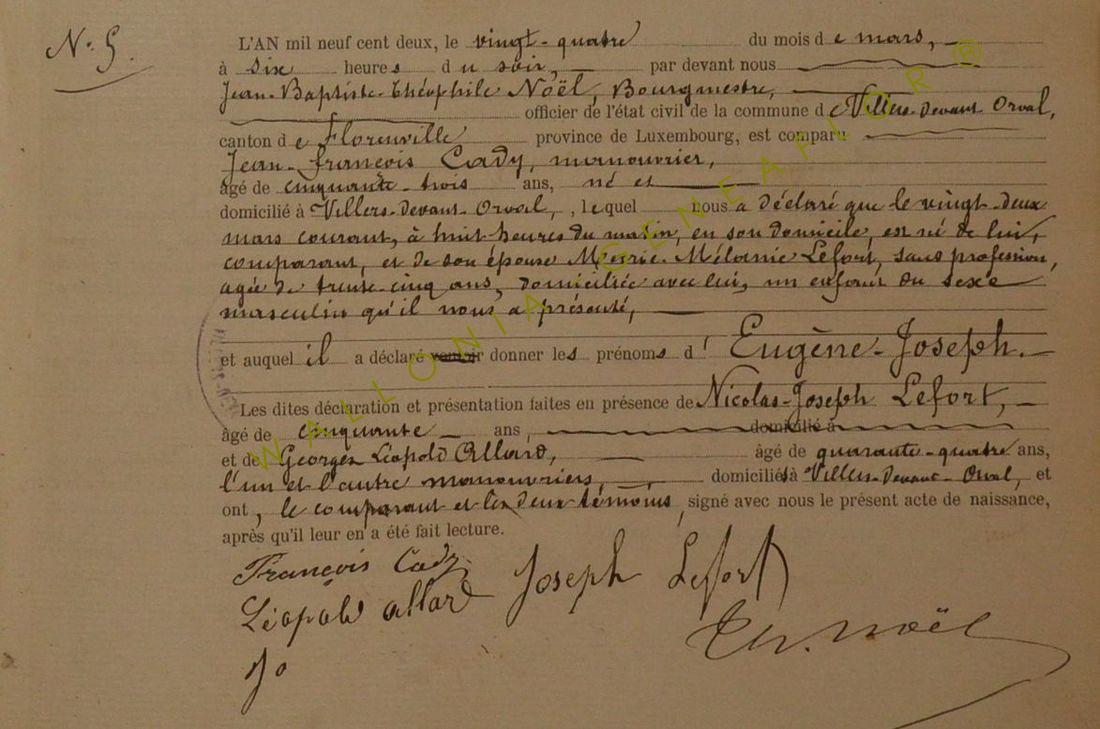 N° 5.
L'AN mil neuf cent deux, le vingt-quatre du mois de mars,
à six heures du soir, par devant nous
Jean-Baptiste-Théophile Noël, Bourgmestre,
officier de l'état civil de la commune de Villers-devant-Orval,
canton de Florenville province de Luxembourg, est comparu
Jean-François Cady, manouvrier,
âgé de cinquante-trois ans, né et
domicilié à Villers-devant-Orval, , lequel nous a déclaré que le vingt-deux
mars courant, à huit heures du matin, en son domicile, est né de lui,
comparant, et de son épouse Marie-Mélanie Lefort, sans profession,
agée de trente-cinq ans, domiciliée avec lui, un enfant du sexe
masculin qu'il nous a présenté,
et auquel il a déclaré vouloir donner les prénoms d' Eugène-Joseph.
Les dites déclaration et présentation faites en présence de Nicolas-Joseph Lefort,
âgé de cinquante ans, domicilié à
et de Georges Léopold Allard, âgé de quarante-quatre ans,
l'un et l'autre manouvriers, domiciliés à Villers-devant-Orval, et
ont, le comparant et les deux témoins, signé avec nous le présent acte de naissance,
après qu'il leur en a été fait lecture.
François Cady
Joseph Lefort
Léopold allard
Th. Noël
Jo
WALLONIA GENEAFLOR ®